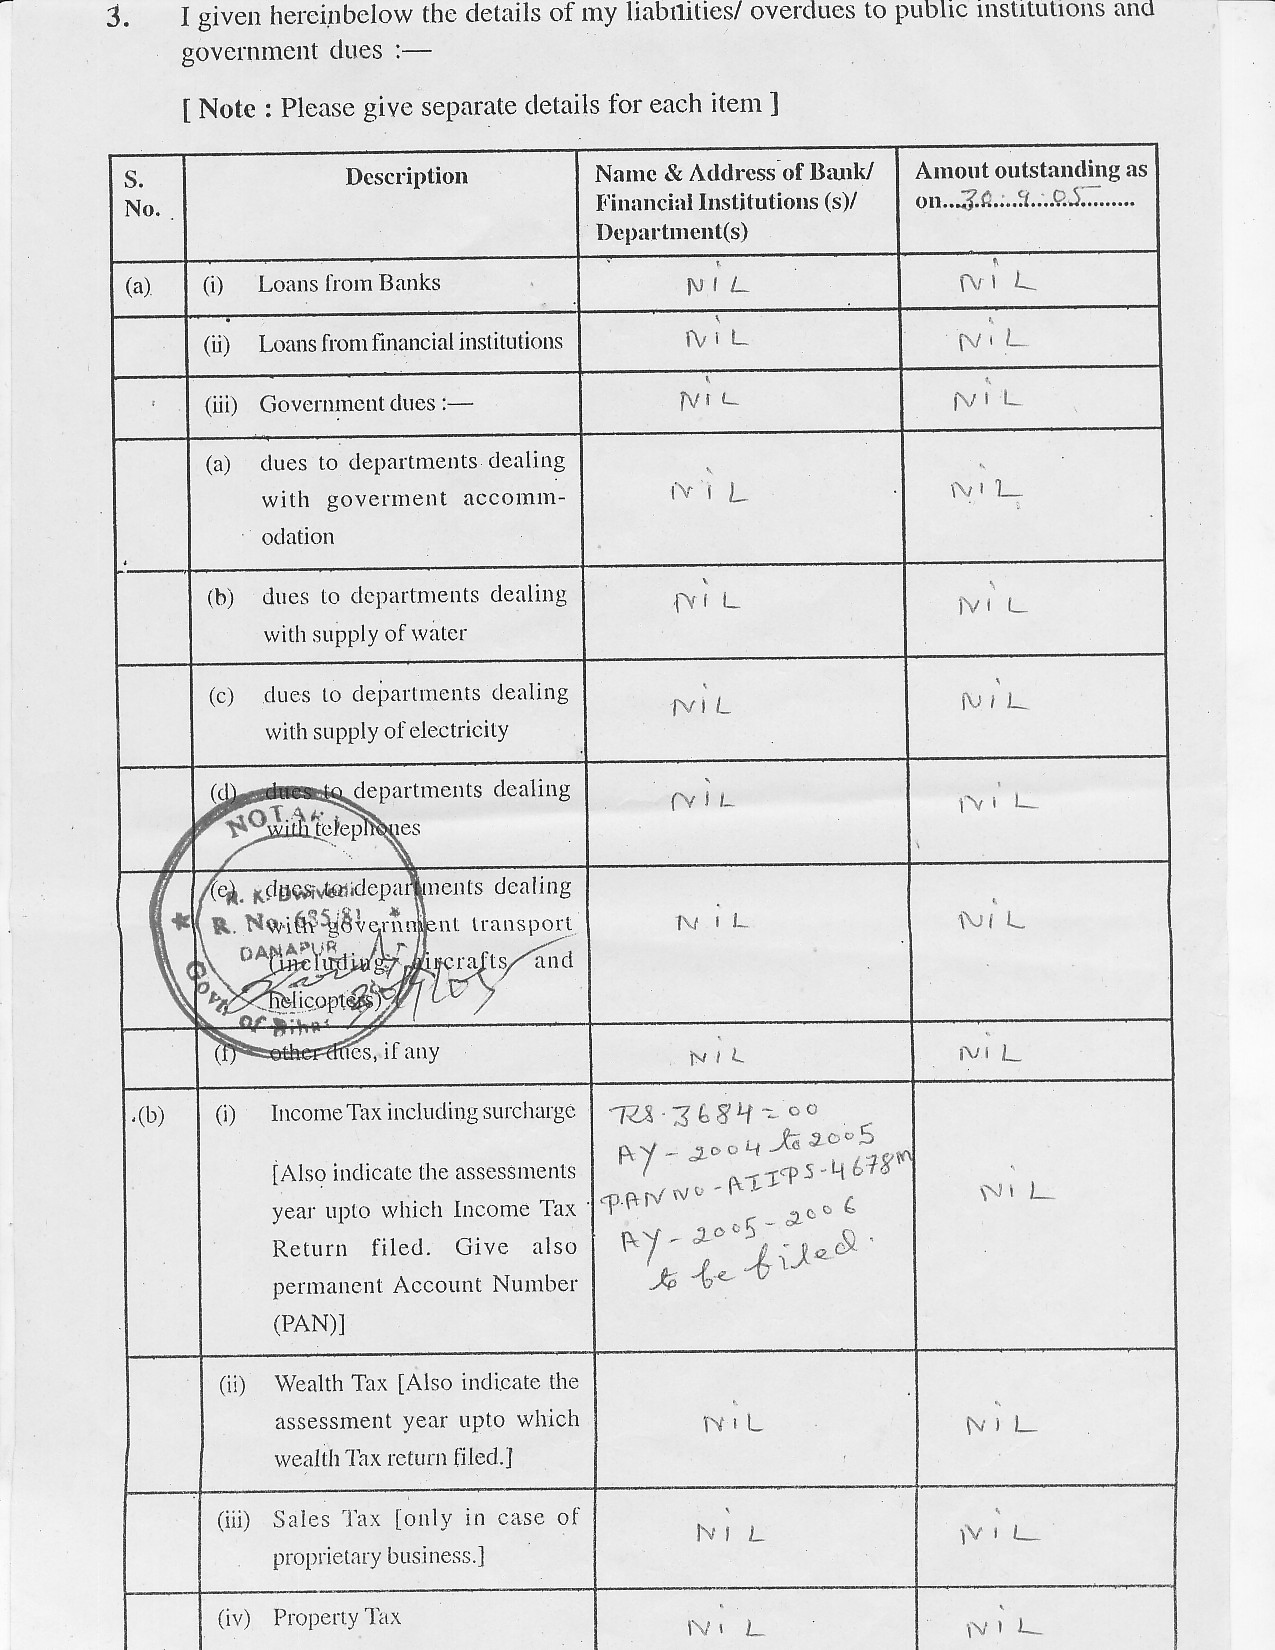 3. I given hereinbelow the details of my liabilities/ overdues to public institutions and
government dues :—
[ Note : Please give separate details for each item ]
S. No. Description Name & Address of Bank/ Financial Institutions (s)/ Department(s) Amout outstanding as on....30...9....05..........
(a) (i) Loans from Banks NiL NiL
(ii) Loans from financial institutions NiL NiL
(iii) Government dues :— NiL NiL
(a) dues to departments dealing
with goverment accomm-
odation
NiL NiL
(b) dues to departments dealing
with supply of water
NiL NiL
(c) dues to departments dealing
with supply of electricity
NiL NiL
(d) dues to departments dealing
with telephones
NiL NiL
(e) dues to departments dealing
with government transport
(including aircrafts and
helicopters)
NiL NiL
NOTARY
R. K. Dwivedi
R. No. 685/81
DANAPUR
Govt. of Bihar
(f) other dues, if any NiL NiL
(b) (i) Income Tax including surcharge
[Also indicate the assessments
year upto which Income Tax
Return filed. Give also
permanent Account Number
(PAN)]
RS. 3684=00
AY - 2004 to 2005
PAN NO - AIIPS-4678M
AY - 2005-2006
to be filed.
NiL
(ii) Wealth Tax [Also indicate the
assessment year upto which
wealth Tax return filed.]
NiL NiL
(iii) Sales Tax [only in case of
proprietary business.]
NiL NiL
(iv) Property Tax NiL NiL